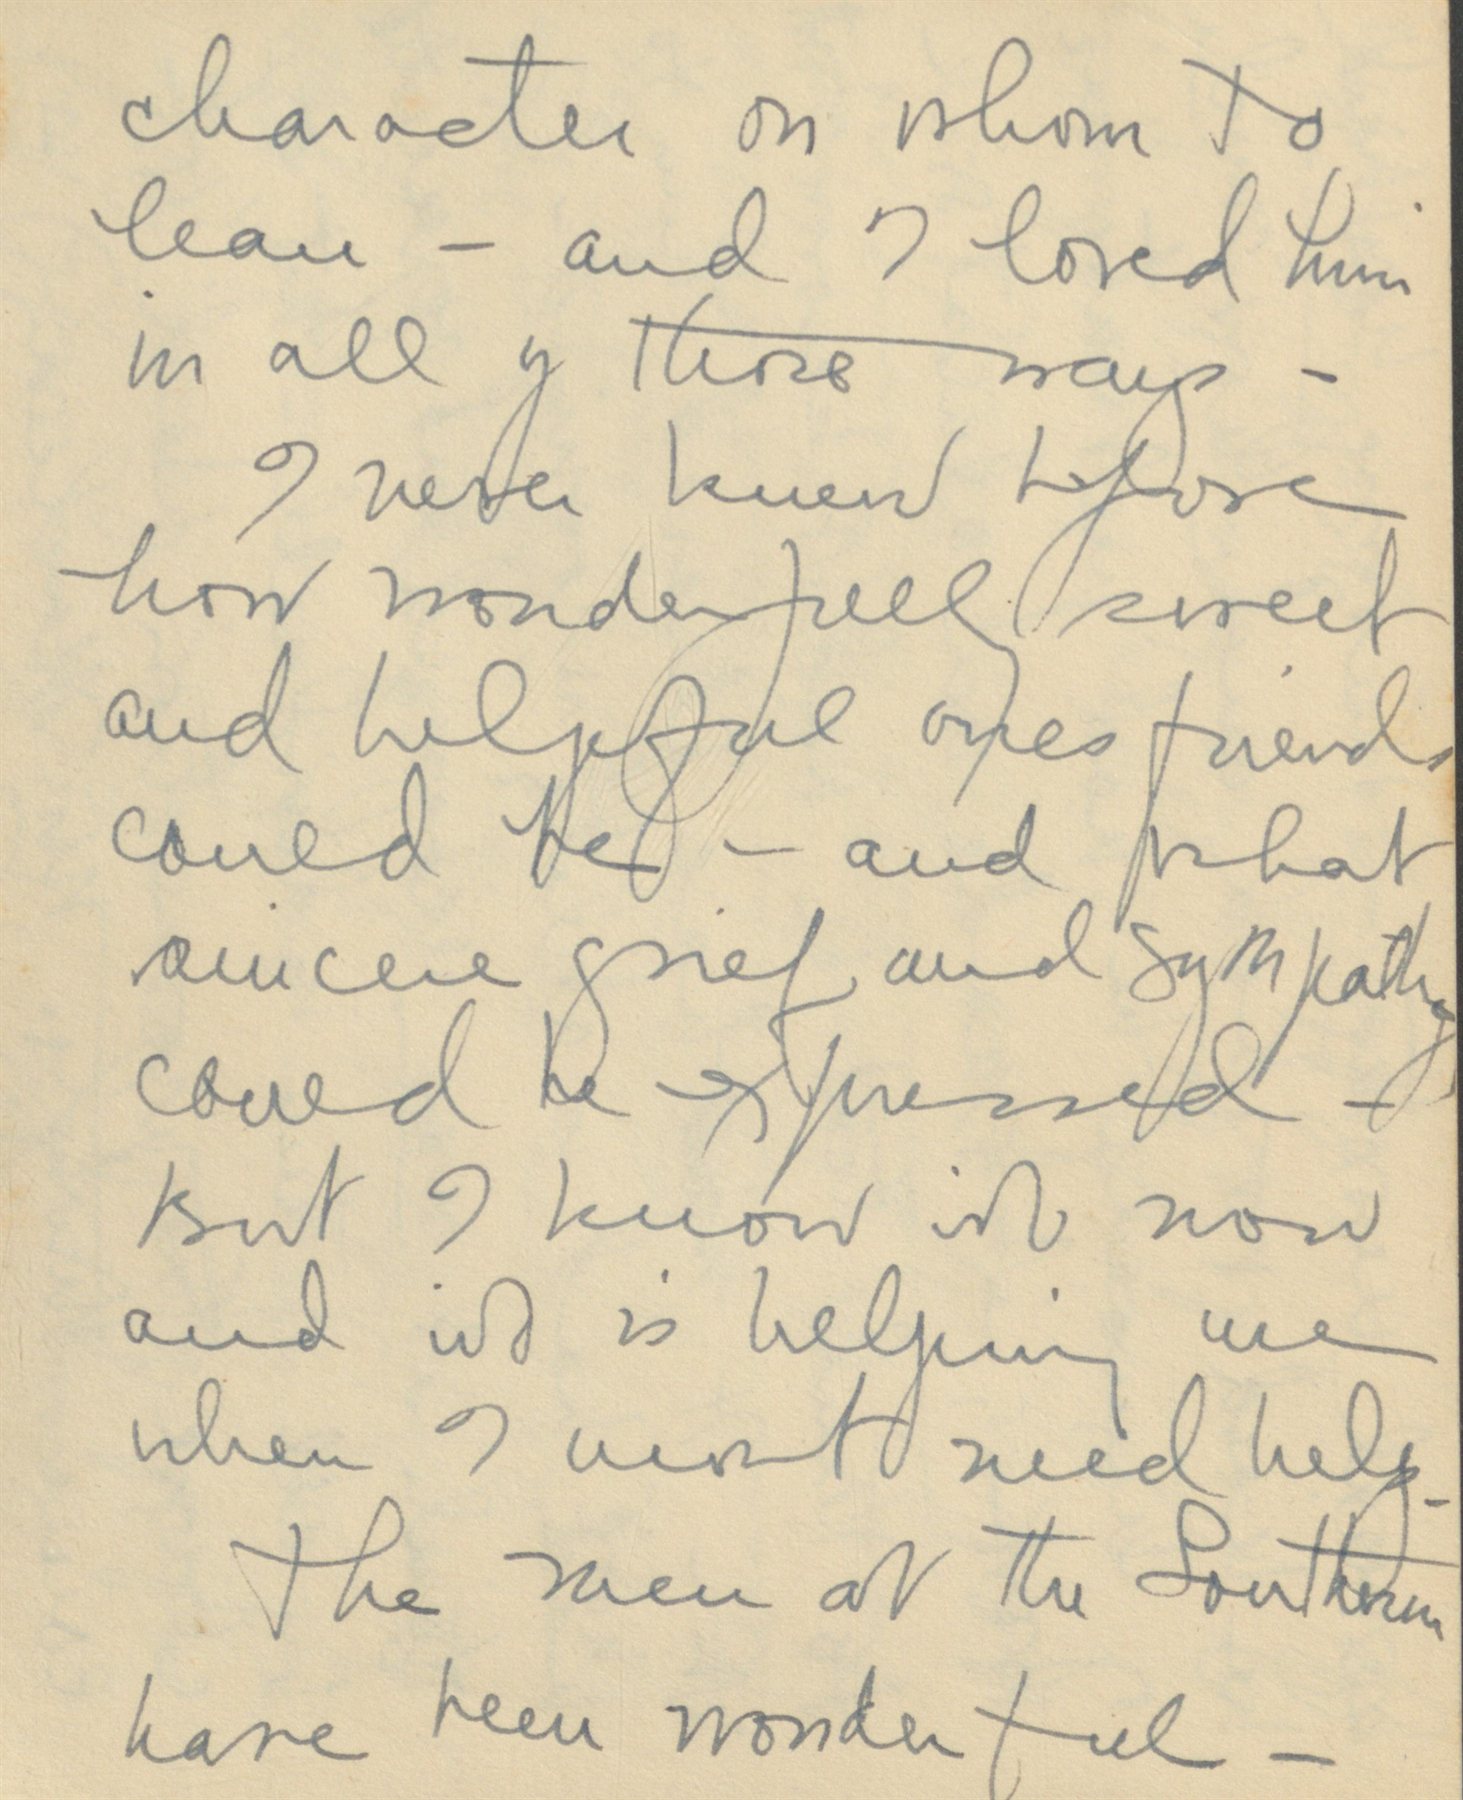 character on whom to
lean – and I loved him
in all of those ways –
I never knew before
how wonderfully sweet
and helpful ones friends
could be – and what
sincere grief and sympathy
could be expressed –
But I know it now
and it is helping me
when I most need help –
The men at the Southern
have been wonderful –